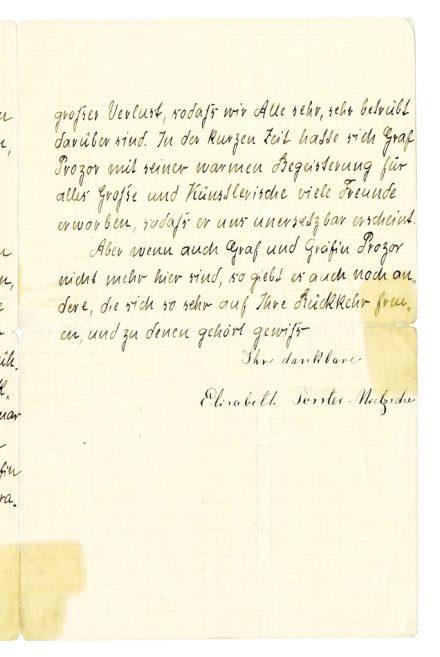 großer Verlust, sodaß wir Alle sehr, sehr betrübt
darüber sind. In der kurzen Zeit hatte sich Graf
Prozor mit seiner warmen Begeisterung für
alles Große und Künstlerische viele Freunde
erworben, sodaß er uns unersetzbar erscheint.
Aber wenn auch Graf und Gräfin Prozor
nicht mehr hier sind, so giebt es auch noch an-
dere, die sich so sehr auf Ihre Rückkehr freu-
en, und zu denen gehört gewiß
Ihre dankbare
Elisabeth Förster-Nietzsche